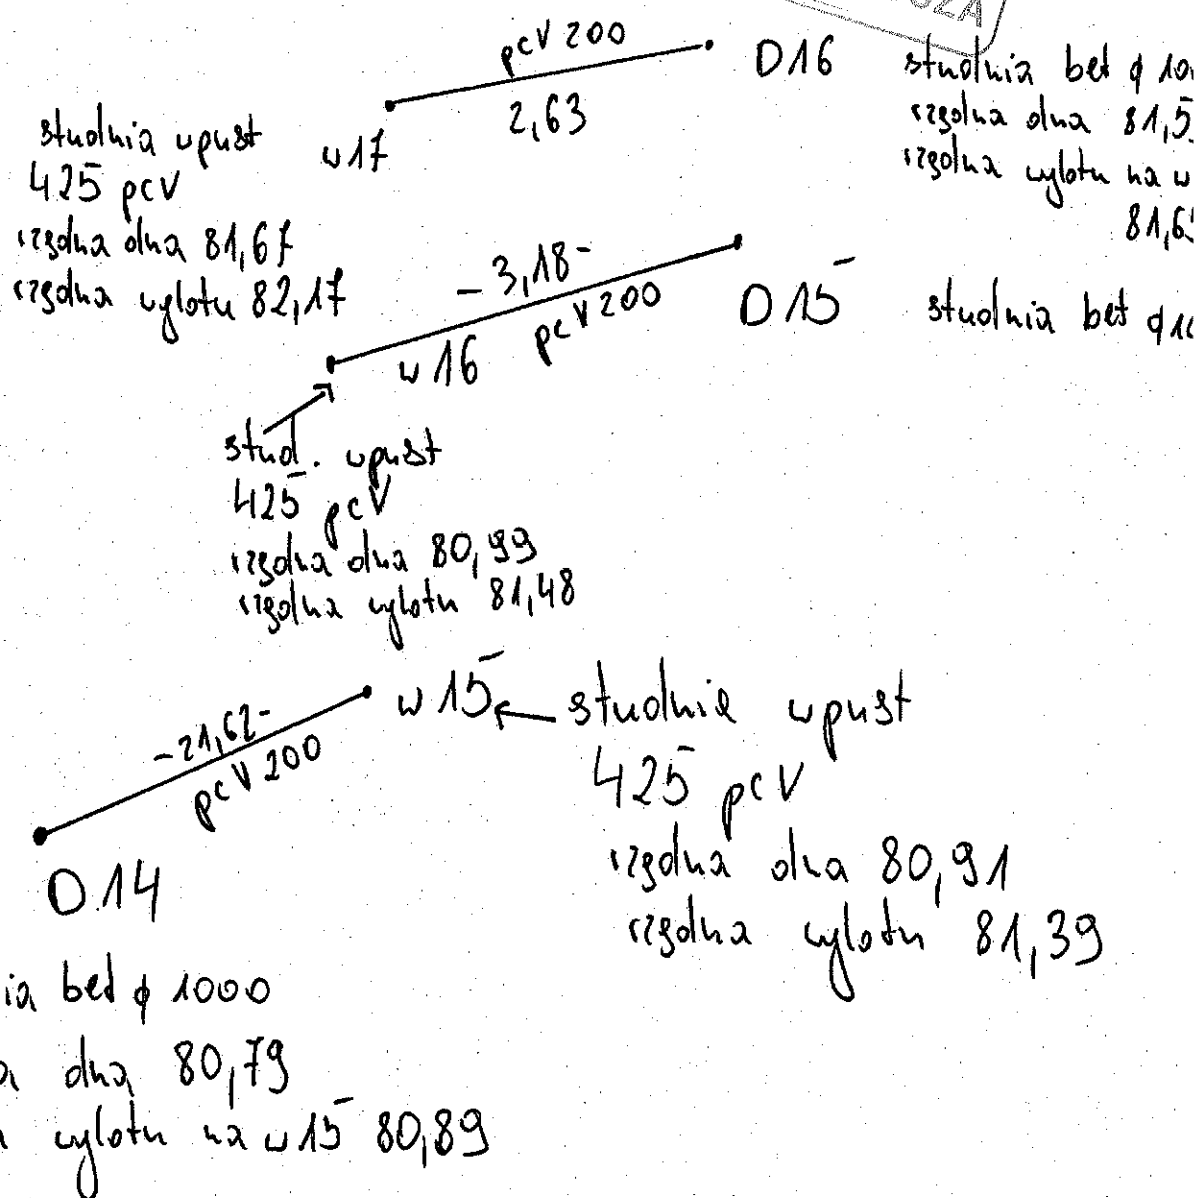 pcV 200
2,63
D16
w17
studnia bet ϕ 10
rzędna dna 81,5
rzędna wylotu na w
81,6
studnia wpust
425 pcV
rzędna dna 81,67
rzędna wylotu 82,17
- 3,18 -
pcV 200
D 15
w 16
studnia bet ϕ 1
stud. wpust
425 pcV
rzędna dna 80,99
rzędna wylotu 81,48
- 21,62 -
pcV 200
w 15
studnia wpust
425 pcV
rzędna dna 80,91
rzędna wylotu 81,39
D 14
ia bet ϕ 1000
a dna 80,79
wylotu na w 15 80,89